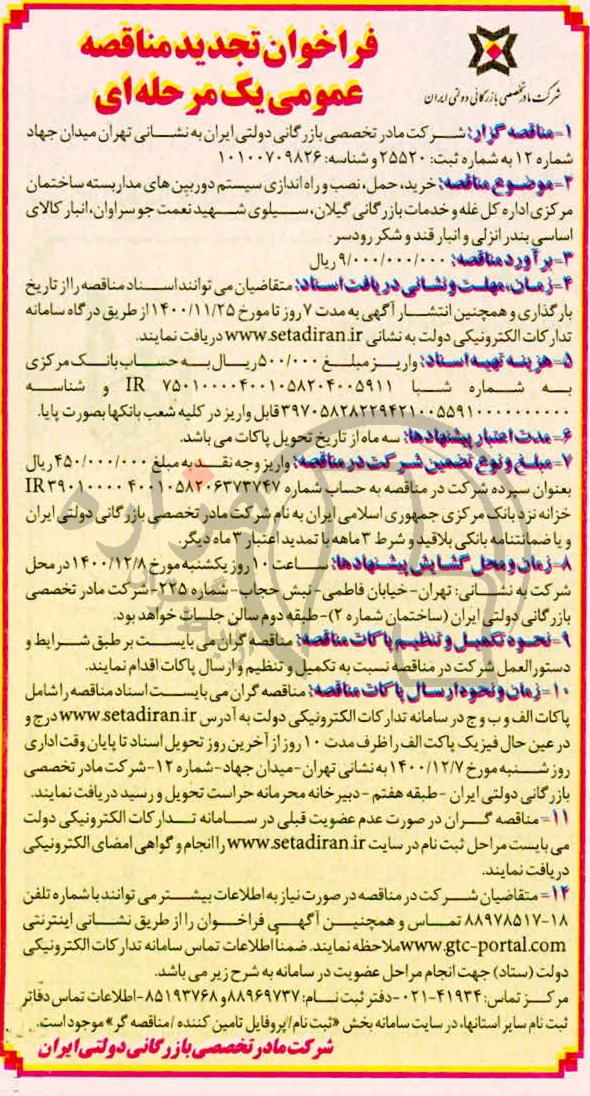 شرکت مادر تخصصی بازرگانی دولتی ایران
فراخوان تجدید مناقصه
عمومی یک مرحله‌ای
۱-مناقصه گزار: شرکت مادر تخصصی بازرگانی دولتی ایران به نشانی تهران میدان جهاد
شماره ۱۲ به شماره ثبت: ۲۵۵۲۰ و شناسه: ۱۰۱۰۰۷۰۹۸۲۶
۲-موضوع مناقصه: خرید، حمل، نصب و راه اندازی سیستم دوربین های مداربسته ساختمان
مرکزی اداره کل غله و خدمات بازرگانی گیلان، سیلوی شهید نعمت جو سراوان، انبار کالای
اساسی بندر انزلی و انبار قند و شکر رودسر
۳-برآورد مناقصه: ۹/۰۰۰/۰۰۰/۰۰۰ ریال
۴-زمان، مهلت و نشانی دریافت اسناد: متقاضیان می توانند اسناد مناقصه را از تاریخ
بارگذاری و همچنین انتشار آگهی به مدت ۷ روز تا مورخ ۱۴۰۰/۱۱/۲۵ از طریق درگاه سامانه
تدارکات الکترونیکی دولت به نشانی www.setadiran.ir دریافت نمایند.
۵-هزینه تهیه اسناد: واریز مبلغ ۵۰۰/۰۰۰ ریال به حساب بانک مرکزی
به شماره شبا IR ۷۵۰۱۰۰۰۰۴۰۰۱۰۵۸۲۰۴۰۰۵۹۱۱ و شناسه
۳۹۷۰۵۸۲۸۲۲۹۴۲۱۰۰۵۵۹۱۰۰۰۰۰۰۰۰۰۰ قابل واریز در کلیه شعب بانکها بصورت پایا.
۶-مدت اعتبار پیشنهادها: سه ماه از تاریخ تحویل پاکات می باشد.
۷-مبلغ و نوع تضمین شرکت در مناقصه: واریز وجه نقد به مبلغ ۴۵۰/۰۰۰/۰۰۰ ریال
بعنوان سپرده شرکت در مناقصه به حساب شماره IR ۳۹۰۱۰۰۰۰ ۴۰۰۱۰۵۸۲۰۶۳۷۳۷۴۷
خزانه نزد بانک مرکزی جمهوری اسلامی ایران به نام شرکت مادر تخصصی بازرگانی دولتی ایران
و یا ضمانتنامه بانکی بلاقید و شرط ۳ ماهه با تمدید اعتبار ۳ ماه دیگر.
۸-زمان و محل گشایش پیشنهادها: ساعت ۱۰ روز یکشنبه مورخ ۱۴۰۰/۱۲/۸ در محل
شرکت به نشانی: تهران-خیابان فاطمی-نبش حجاب-شماره ۲۲۵-شرکت مادر تخصصی
بازرگانی دولتی ایران (ساختمان شماره ۲)-طبقه دوم سالن جلسات خواهد بود.
۹-نحوه تکمیل و تنظیم پاکات مناقصه: مناقصه گران می بایست بر طبق شرایط و
دستورالعمل شرکت در مناقصه نسبت به تکمیل و تنظیم و ارسال پاکات اقدام نمایند.
۱۰-زمان و نحوه ارسال پاکات مناقصه: مناقصه گران می بایست اسناد مناقصه را شامل
پاکات الف و ب و ج در سامانه تدارکات الکترونیکی دولت به آدرس www.setadiran.ir درج و
در عین حال فیزیک پاکت الف را ظرف مدت ۱۰ روز از آخرین روز تحویل اسناد تا پایان وقت اداری
روز شنبه مورخ ۱۴۰۰/۱۲/۷ به نشانی تهران-میدان جهاد-شماره ۱۲-شرکت مادر تخصصی
بازرگانی دولتی ایران -طبقه هفتم -دبیرخانه محرمانه حراست تحویل و رسید دریافت نمایند.
۱۱-مناقصه گران در صورت عدم عضویت قبلی در سامانه تدارکات الکترونیکی دولت
می بایست مراحل ثبت نام در سایت www.setadiran.ir را انجام و گواهی امضای الکترونیکی
دریافت نمایند.
۱۲-متقاضیان شرکت در مناقصه در صورت نیاز به اطلاعات بیشتر می توانند با شماره تلفن
۸۸۹۷۸۵۱۷-۱۸ تماس و همچنین آگهی فراخوان را از طریق نشانی اینترنتی
www.gtc-portal.com ملاحظه نمایند. ضمناً اطلاعات تماس سامانه تدارکات الکترونیکی
دولت (ستاد) جهت انجام مراحل عضویت در سامانه به شرح زیر می باشد.
مرکز تماس: ۴۱۹۳۴-۰۲۱-دفتر ثبت نام: ۸۸۹۶۹۷۳۷ و ۸۵۱۹۳۷۶۸-اطلاعات تماس دفاتر
ثبت نام سایر استانها، در سایت سامانه بخش «ثبت نام/پروفایل تامین کننده /مناقصه گر» موجود است.
شرکت مادر تخصصی بازرگانی دولتی ایران